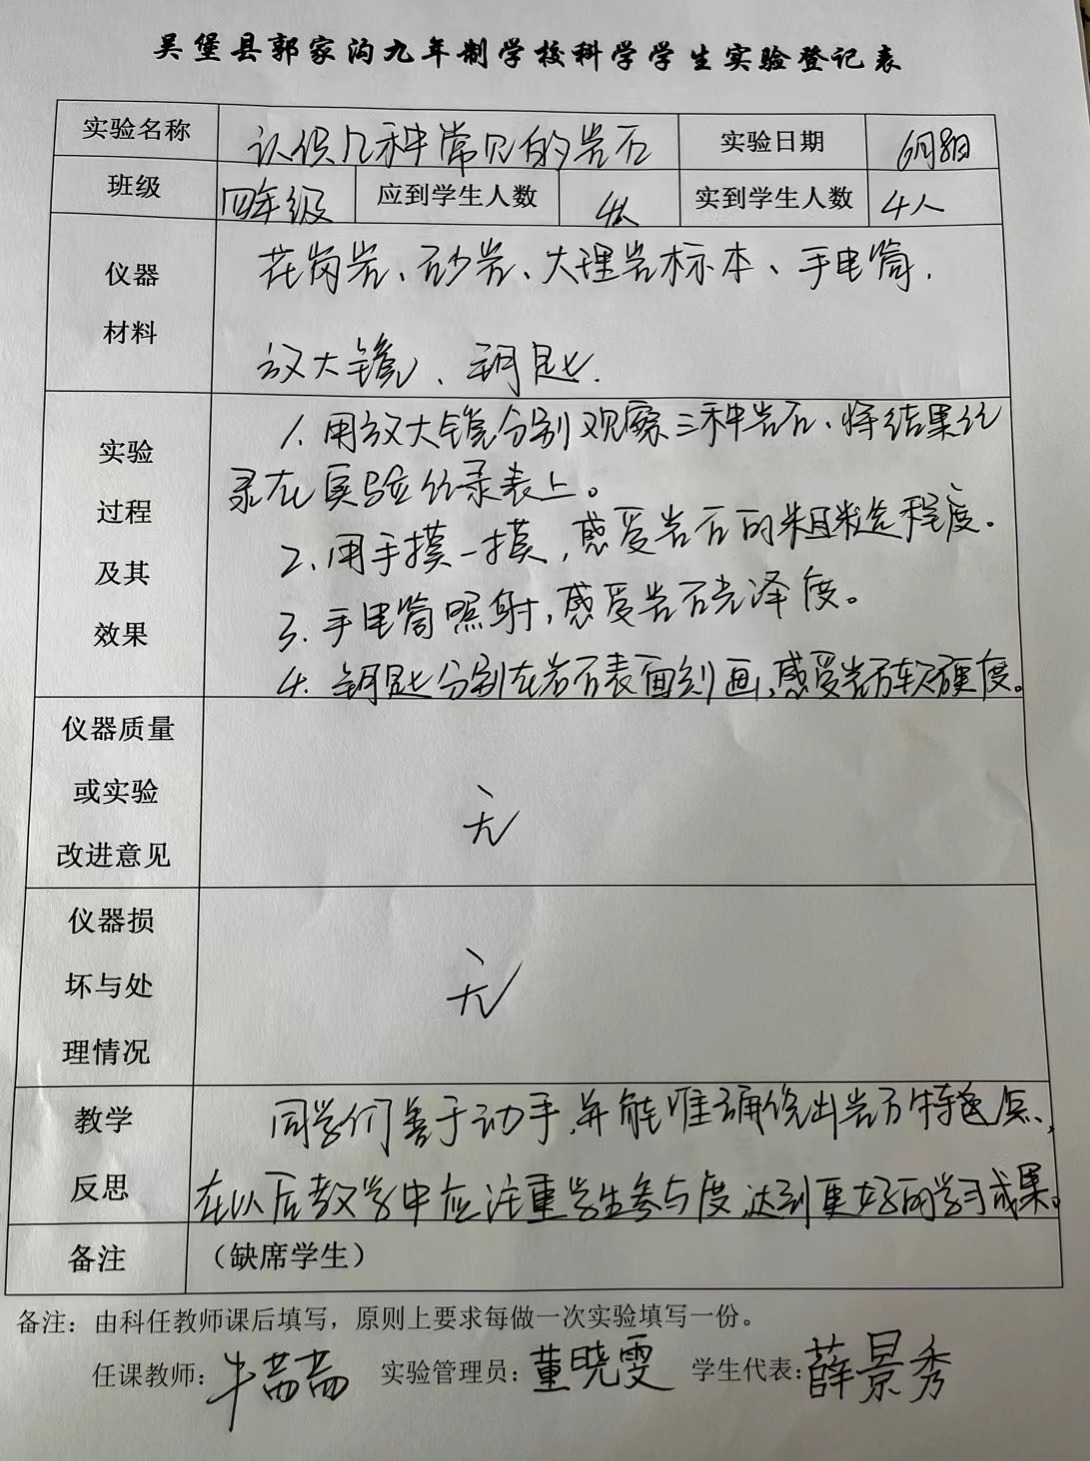 吴堡县郭家沟九年制学校科学学生实验登记表
实验名称 认识几种常见的岩石 实验日期 6月8日
班级 四年级 应到学生人数 4人 实到学生人数 4人
仪器 花岗岩、砂岩、大理岩标本、手电筒.
材料 放大镜、钥匙.
实验 1.用放大镜分别观察三种岩石、将结果记
录在实验记录表上。
过程 2.用手摸一摸,感受岩石的粗糙程度.
及其 3.手电筒照射,感受岩石光泽度。
效果 4.钥匙分别在岩石表面刻画,感受岩石软硬度。
仪器质量
或实验 无
改进意见
仪器损
坏与处 无
理情况
教学 同学们善于动手,并能准确说出岩石特点,
反思 在以后教学中应注重学生参与度,达到更好的学习成果。
备注 (缺席学生)
备注:由科任教师课后填写,原则上要求每做一次实验填写一份。
任课教师:牛 实验管理员:董晓雯 学生代表:薛景秀